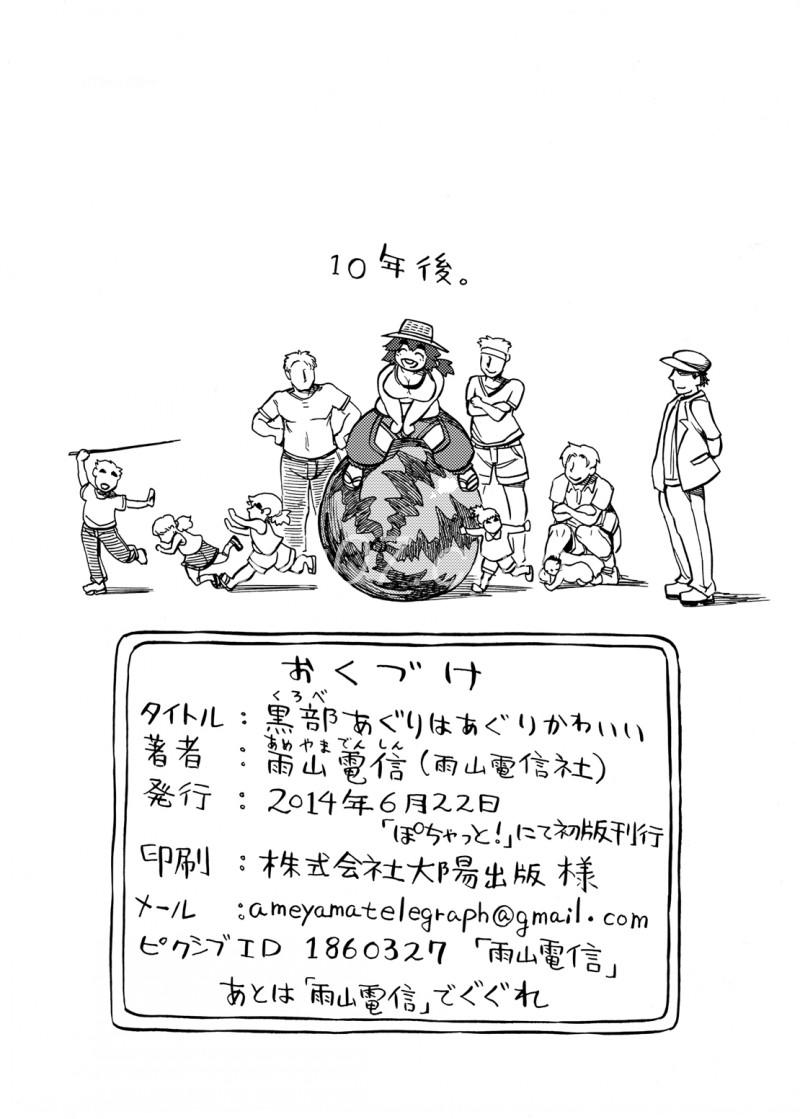 10年後。
おくづけ
くろべ
タイトル：黒部あぐりはあぐりかわいい
あめやまでんしん
著者：雨山電信（雨山電信社）
発行：2014年6月22日
「ぽちゃっと！」にて初版刊行
印刷：株式会社大陽出版 様
メール：ameyamatelegraph@gmail.com
ピクシブID 1860327 「雨山電信」
あとは「雨山電信」でぐぐれ